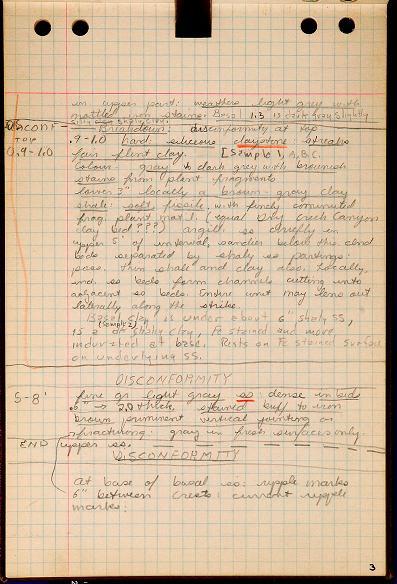 in upper part: weathers light grey with
mottled iron stains. Basal 1.3 is dark gray slightly
silty
DISCONF — Breakdown: disconformity at top
TOP .9-1.0 hard siliceous claystone: breaks
0.9-1.0 like flint clay. [Sample 1, A.B.C.
Colour gray to dark grey with brownish
stains from plant fragments
lower 3" locally a brown-gray clay
shale: soft, fissile, with finely comminuted
frag. plant mat'l. (equal Dry Creek Canyon
clay bed???) argill. ss chiefly in
upper 5' of interval, sandier below this. Sand
beds separated by shaly ss partings:
poss. thin shale and clay also. Locally,
ind. ss beds form channels cutting into
adjacent ss beds. Entire unit may lens out
laterally along the strike.
Basal clay, is under about 6" shaly SS,
(Sample 2)
is a shaley clay, Fe stained and more
indurated at base. Rests on Fe stained surface
on underlying SS.
DISCONFORMITY
5-8' fine gr light gray ss: dense in beds
6" → 2.0 thick, stained buff to iron
brown prominent vertical jointing or
fracturing: gray on fresh surfaces only.
END upper ss.
DISCONFORMITY
at base of basal ss: ripple marks
6" between crests: current ripple
marks.
3